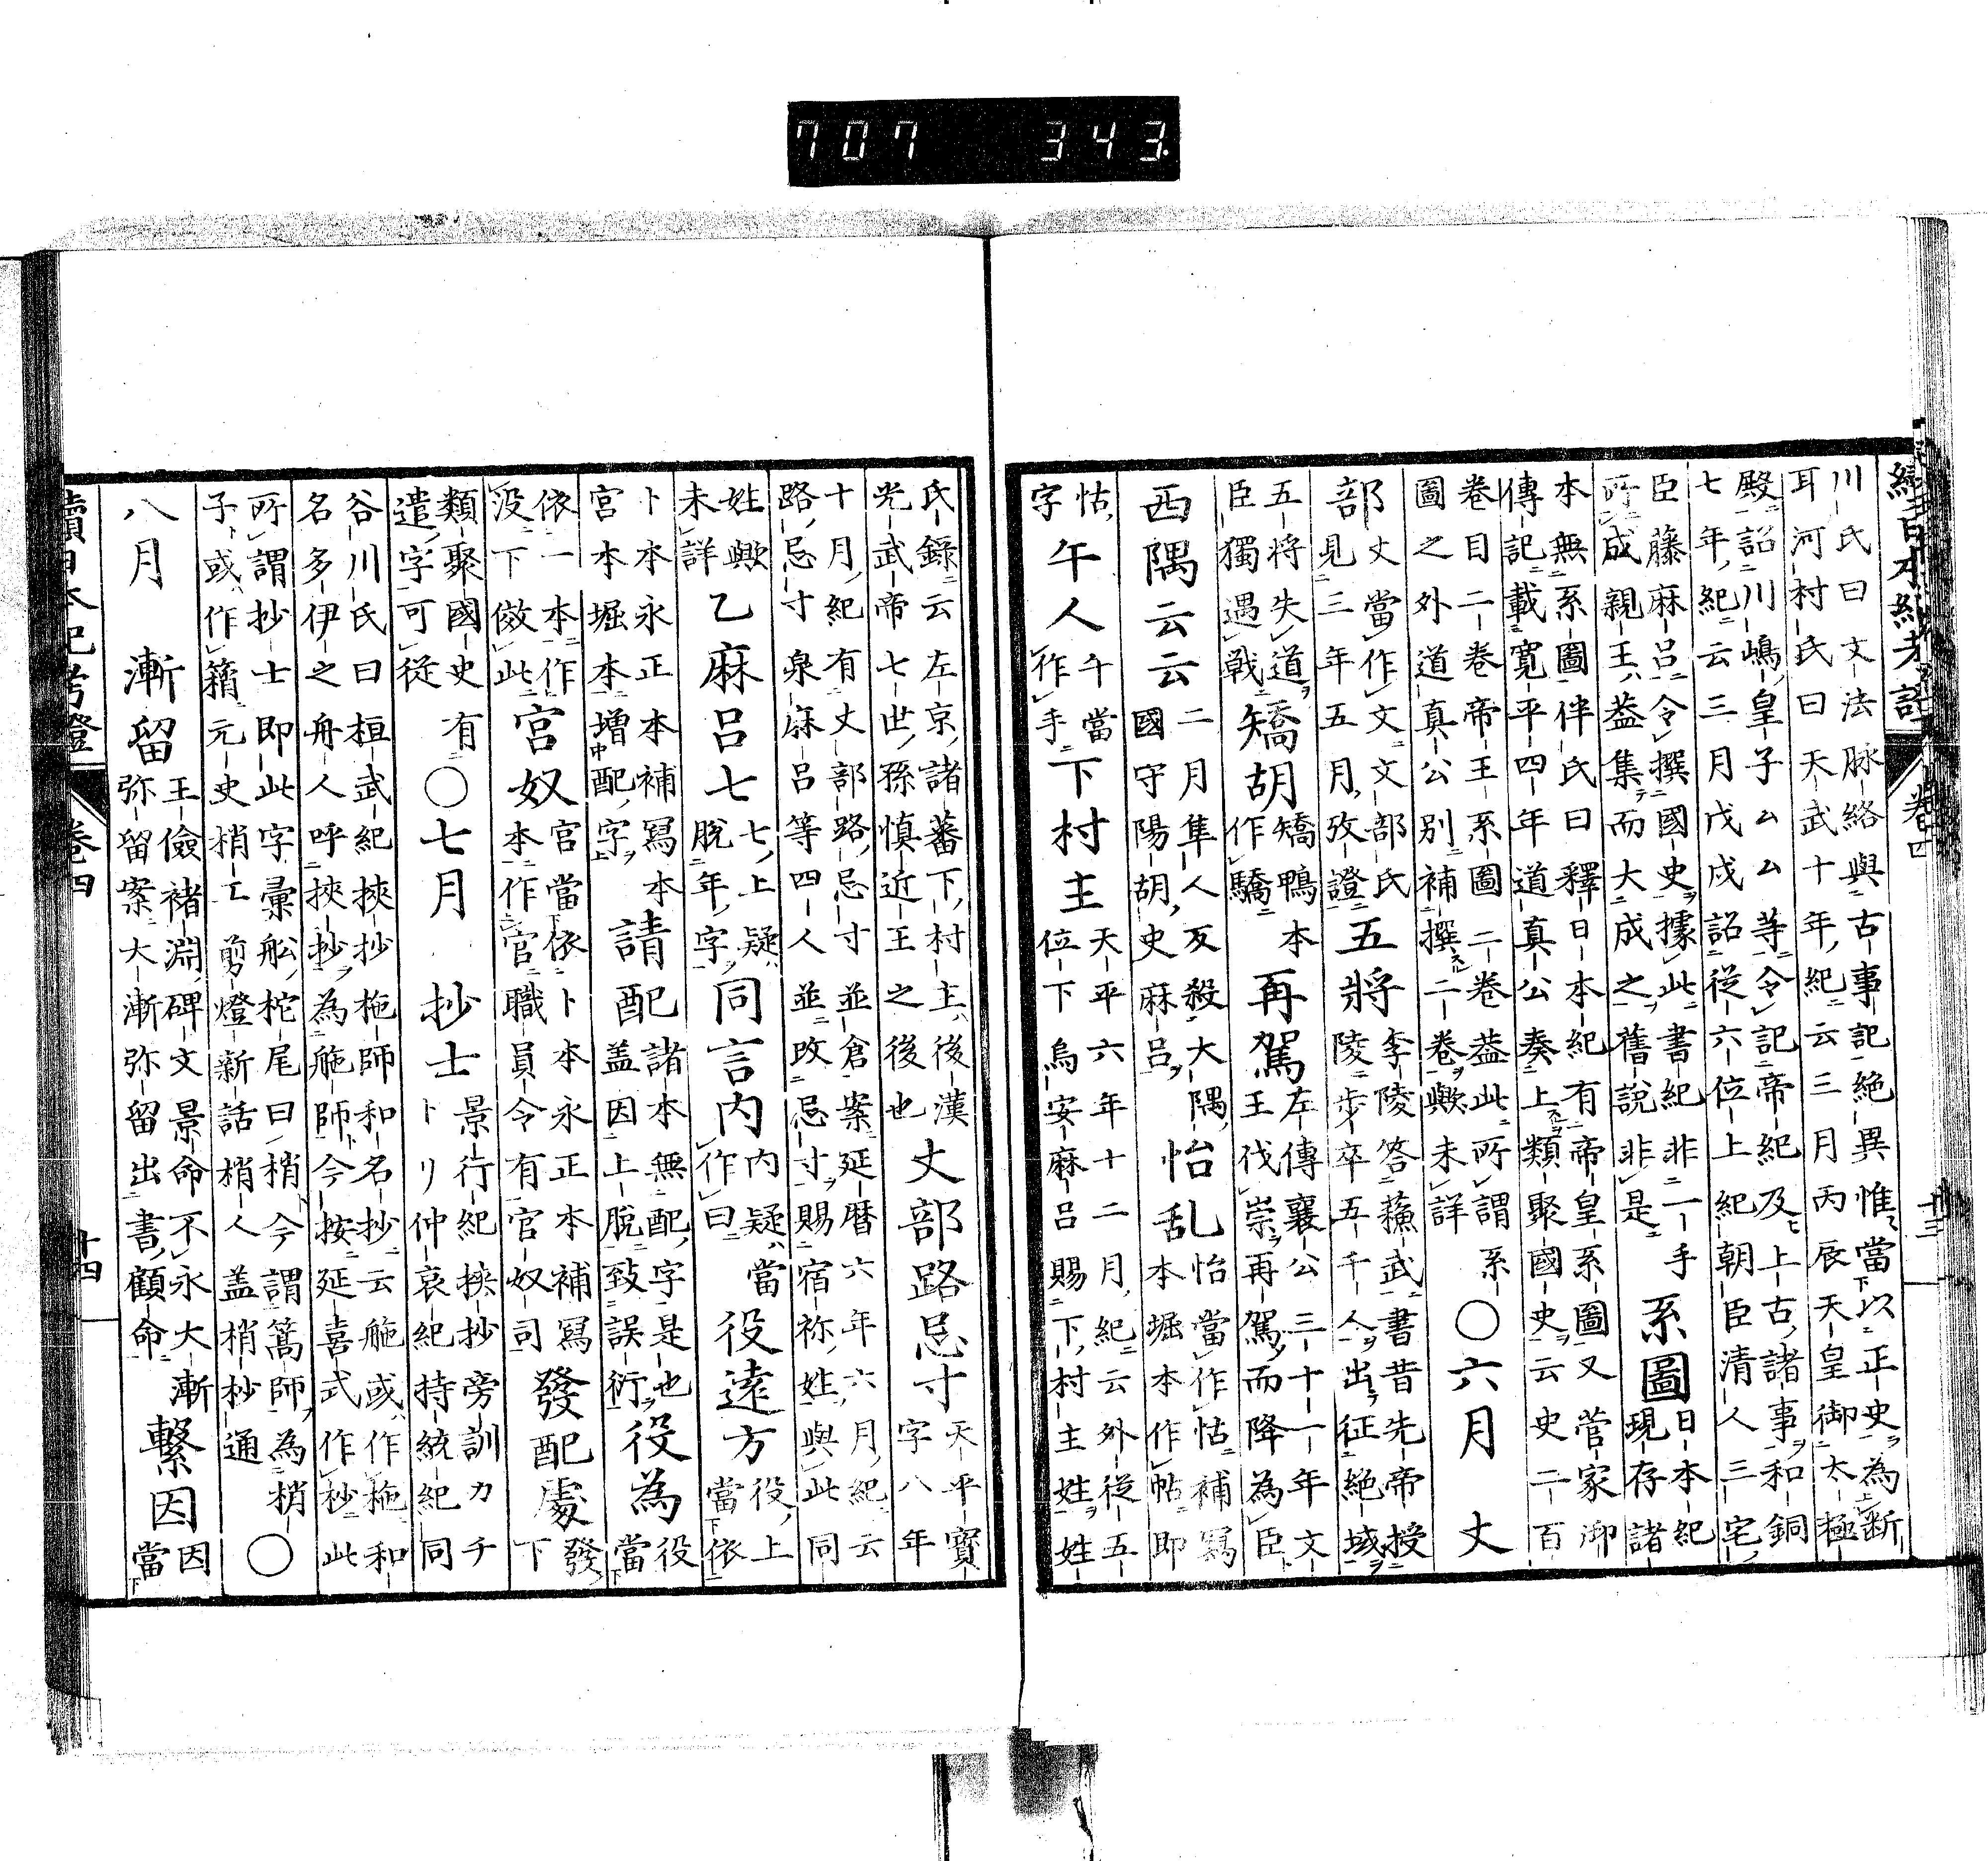 707 343
續日本紀考證 卷四 十三
川氏曰文法脉絡與古事記絶異惟當以正史為斷
耳河村氏曰天武十年紀云三月丙辰天皇御大極
殿詔川嶋皇子厶厶等令記帝紀及上古諸事和銅
七年紀云三月戊戌詔從六位上紀朝臣清人三宅
臣藤麻呂令撰國史據此書紀非一手
所成親王蓋集而大成之舊說非是
系圖
日本紀
現存諸
本無系圖伴氏曰釋日本紀有帝皇系圖又菅家御
傳記載寛平四年道真公奏上類聚國史云史二百
卷目二卷帝王系圖二卷蓋此所謂系
圖之外道真公別補撰二卷歟未詳
○六月
丈
部
丈當作文文部氏
見三年五月攷證
五將
李陵答蘓武書昔先帝授
陵步卒五千人出征絶域
五將失道
臣獨遇戰
矯胡
矯鴨本
作驕
再駕
左傳襄公三十一年文
王伐崇再駕而降為臣
西隅云云
二月隼人反殺大隅
國守陽胡史麻呂
怡乱
怡當作怙補寫
本堀本作帖即
怙
字
午人
午當
作手
下村主
天平六年十二月紀云外從五
位下烏安麻呂賜下村主姓姓
氏錄云左京諸蕃下村主後漢
光武帝七世孫慎近王之後也
丈部路忌寸
天平寶
字八年
十月紀有丈部路忌寸並倉案延暦六年六月紀云
路忌寸泉麻呂等四人並改忌寸賜宿祢姓與此同
姓歟
未詳
乙麻呂七
七上疑
脫年字
同言内
内疑當
作曰
役遠方
役上
當依
卜本永正本補寫本
宮本堀本增配字
請配
諸本無配字是也
蓋因上脫致誤衍
役為
役
當
依一本作
没下倣此
宮奴
宮當依卜本永正本補寫
本作官職員令有官奴司
發配處
發
下
類聚國史有
遣字可從
○七月
抄士
景行紀挾抄旁訓カチ
トリ仲哀紀持統紀同
谷川氏曰桓武紀挾抄柂師和名抄云舵或作柂和
名多伊之舟人呼挾抄為舵師今按延喜式作杪此
所謂抄士即此字彙舩柁尾曰梢今謂篙師為梢
子或作䉋元史梢工剪燈新話梢人盖梢杪通
○
八月
漸留
王儉褚淵碑文景命不永大漸
弥留案大漸弥留出書顧命
繫因
因
當
續日本紀考證 卷四 十四